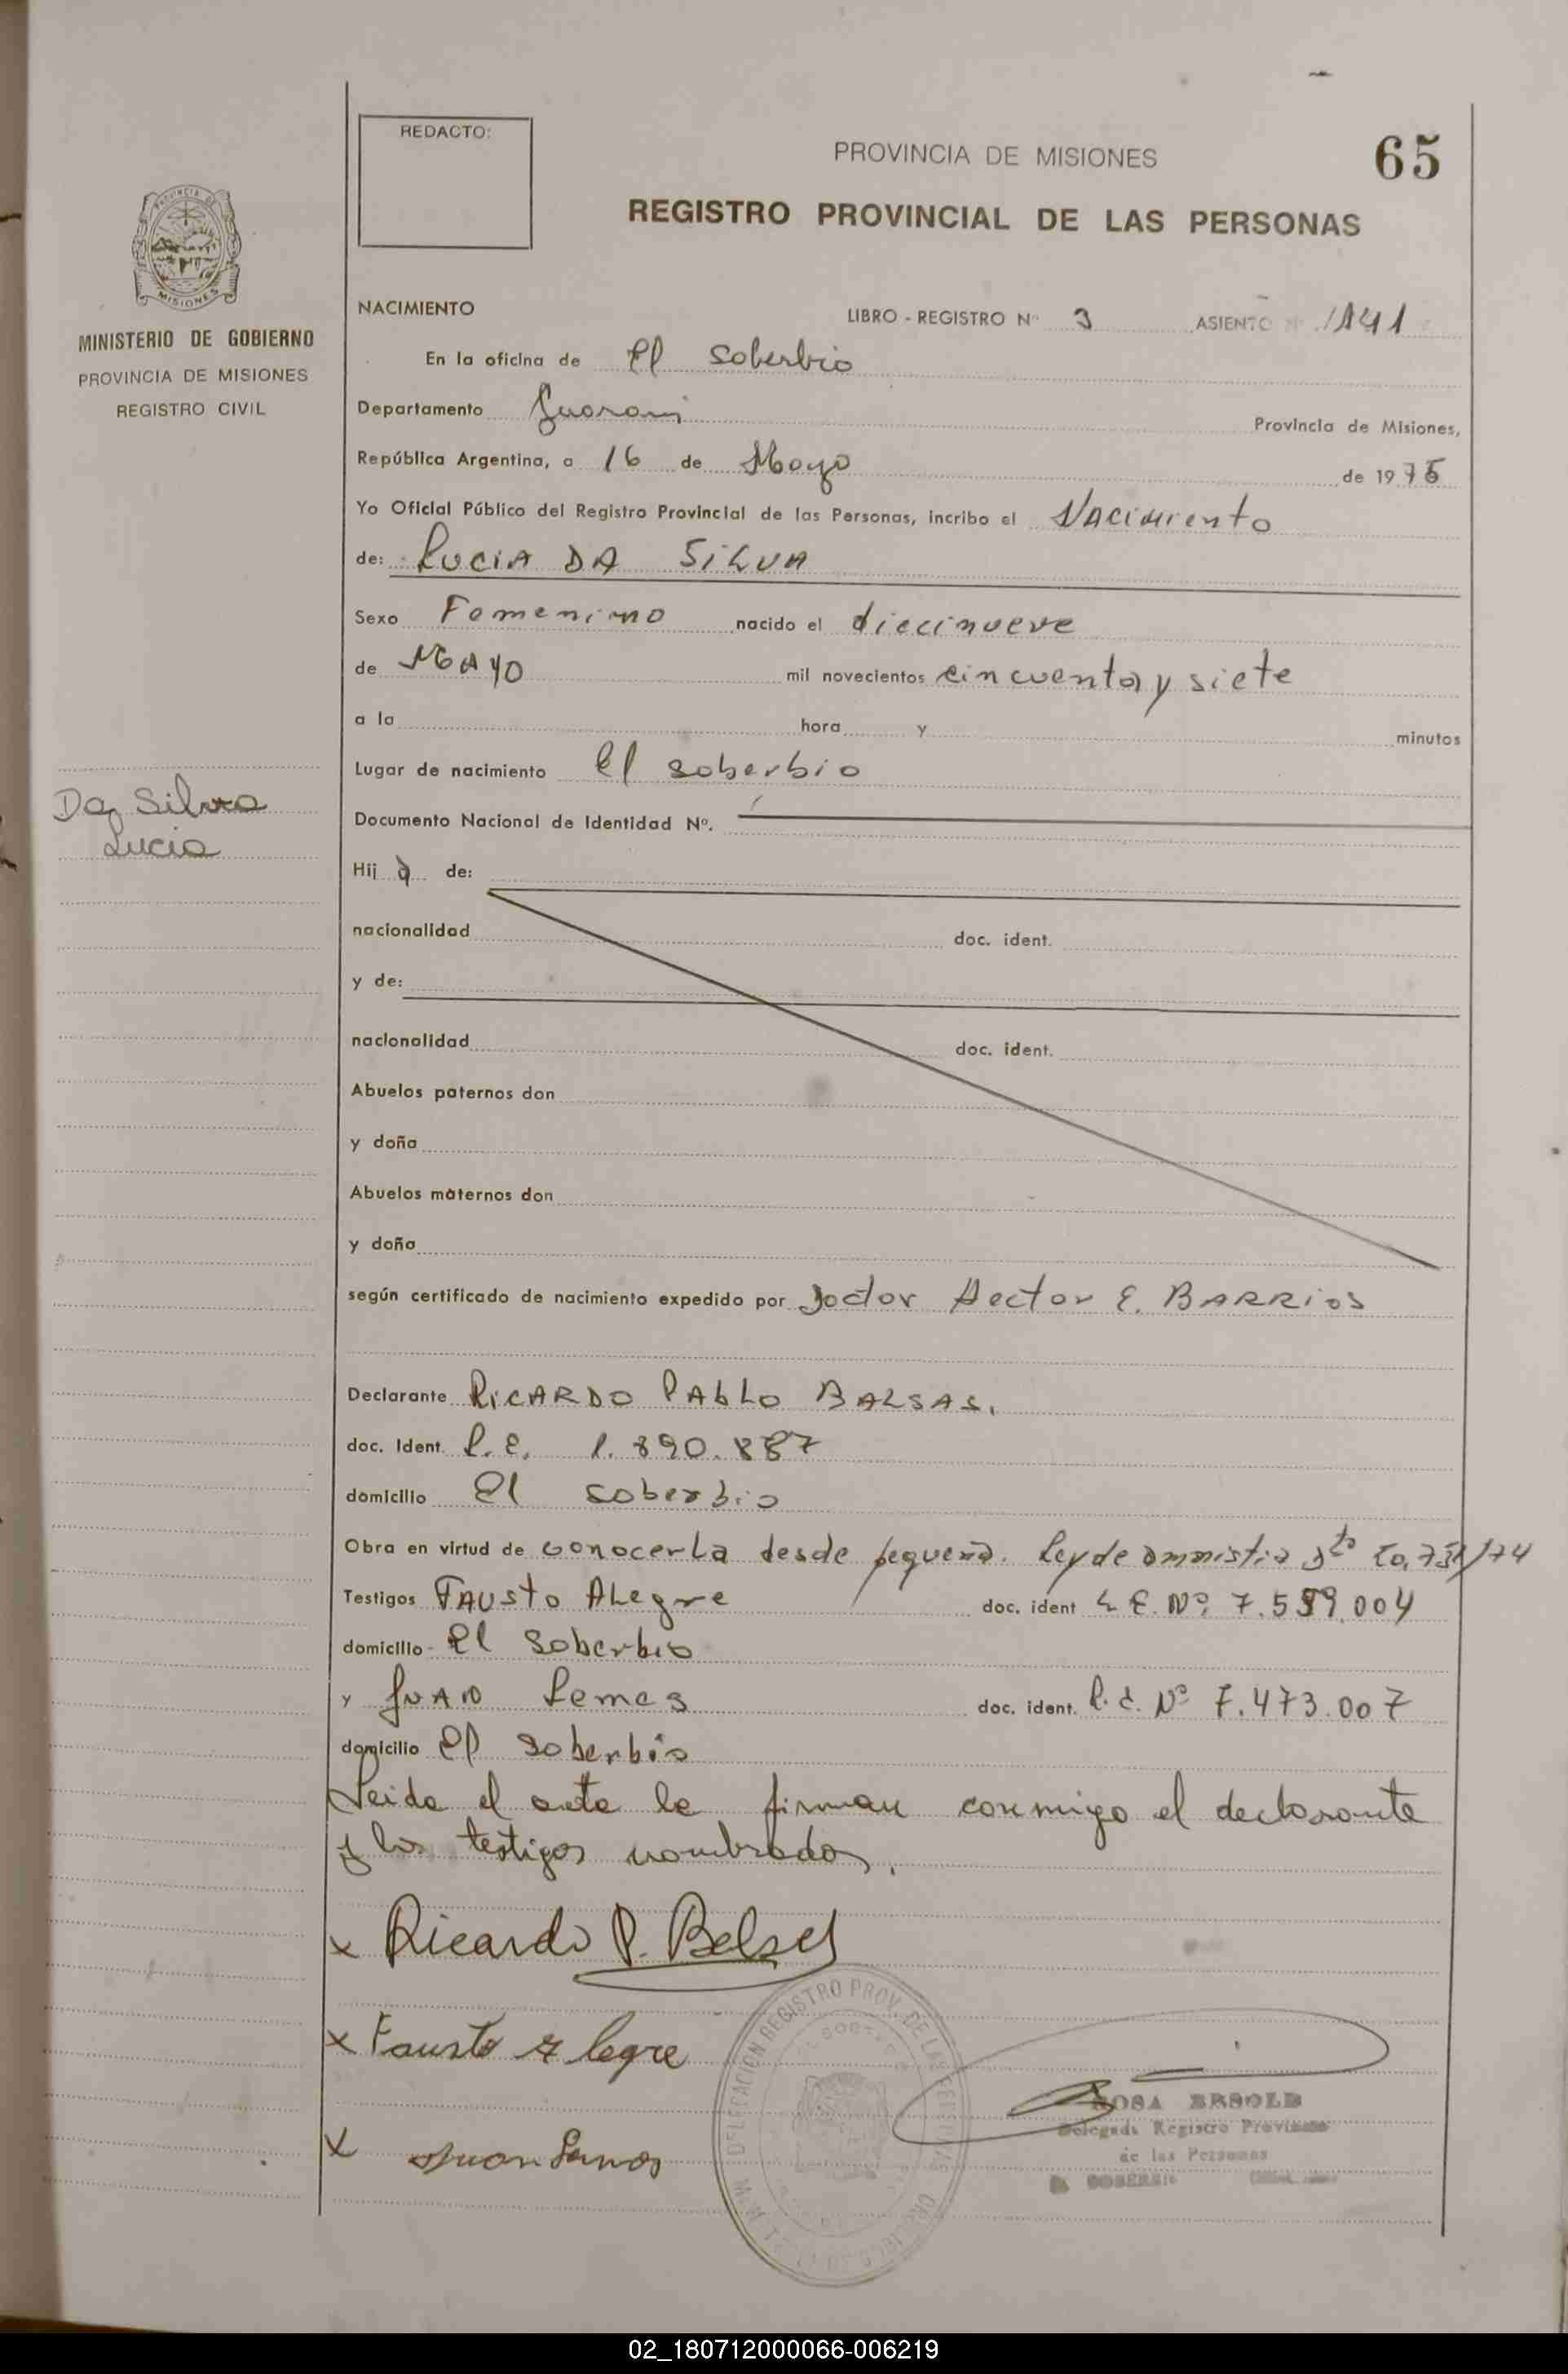 REDACTO:
PROVINCIA DE MISIONES
65
REGISTRO PROVINCIAL DE LAS PERSONAS
PROVINCIA DE
MISIONES
MINISTERIO DE GOBIERNO
PROVINCIA DE MISIONES
REGISTRO CIVIL
NACIMIENTO LIBRO - REGISTRO Nº 3 ASIENTO 141
En la oficina de El Soberbio
Departamento Guarani Provincia de Misiones,
República Argentina, a 16 de Mayo de 1975
Yo Oficial Público del Registro Provincial de las Personas, incribo el Nacimiento
de: LUCIA DA SILVA
Sexo Femenino nacido el diecinueve
de MAYO mil novecientos cincuenta y siete
a la hora y minutos
Lugar de nacimiento El soberbio
Da Silva
Lucia
Documento Nacional de Identidad Nº.
Hij a de:
nacionalidad doc. ident.
y de:
nacionalidad doc. ident.
Abuelos paternos don
y doña
Abuelos maternos don
y doña
según certificado de nacimiento expedido por Doctor Hector E. BARRIOS
Declarante RICARDO PABLO BALSAS.
doc. Ident. L.E. 1.890.887
domicilio El soberbio
Obra en virtud de conocerla desde pequeña. Ley de amnistia Dto 20.751/74
Testigos FAUSTO ALegre doc. ident L.E. Nº 7.559.004
domicilio El Soberbio
y JUAN Lemes doc. ident. L.E. Nº 7.473.007
domicilio El soberbio
Leida el acta la firman conmigo el declarante
y los testigos nombrados.
x Ricardo P. Balsas
x Fausto Alegre
x Juan Lemos
DELEGACION REGISTRO PROV. DE LAS PERSONAS
ROSA
Delegada Registro Provincial
de las Personas
EL SOBERBIO
02_180712000066-006219